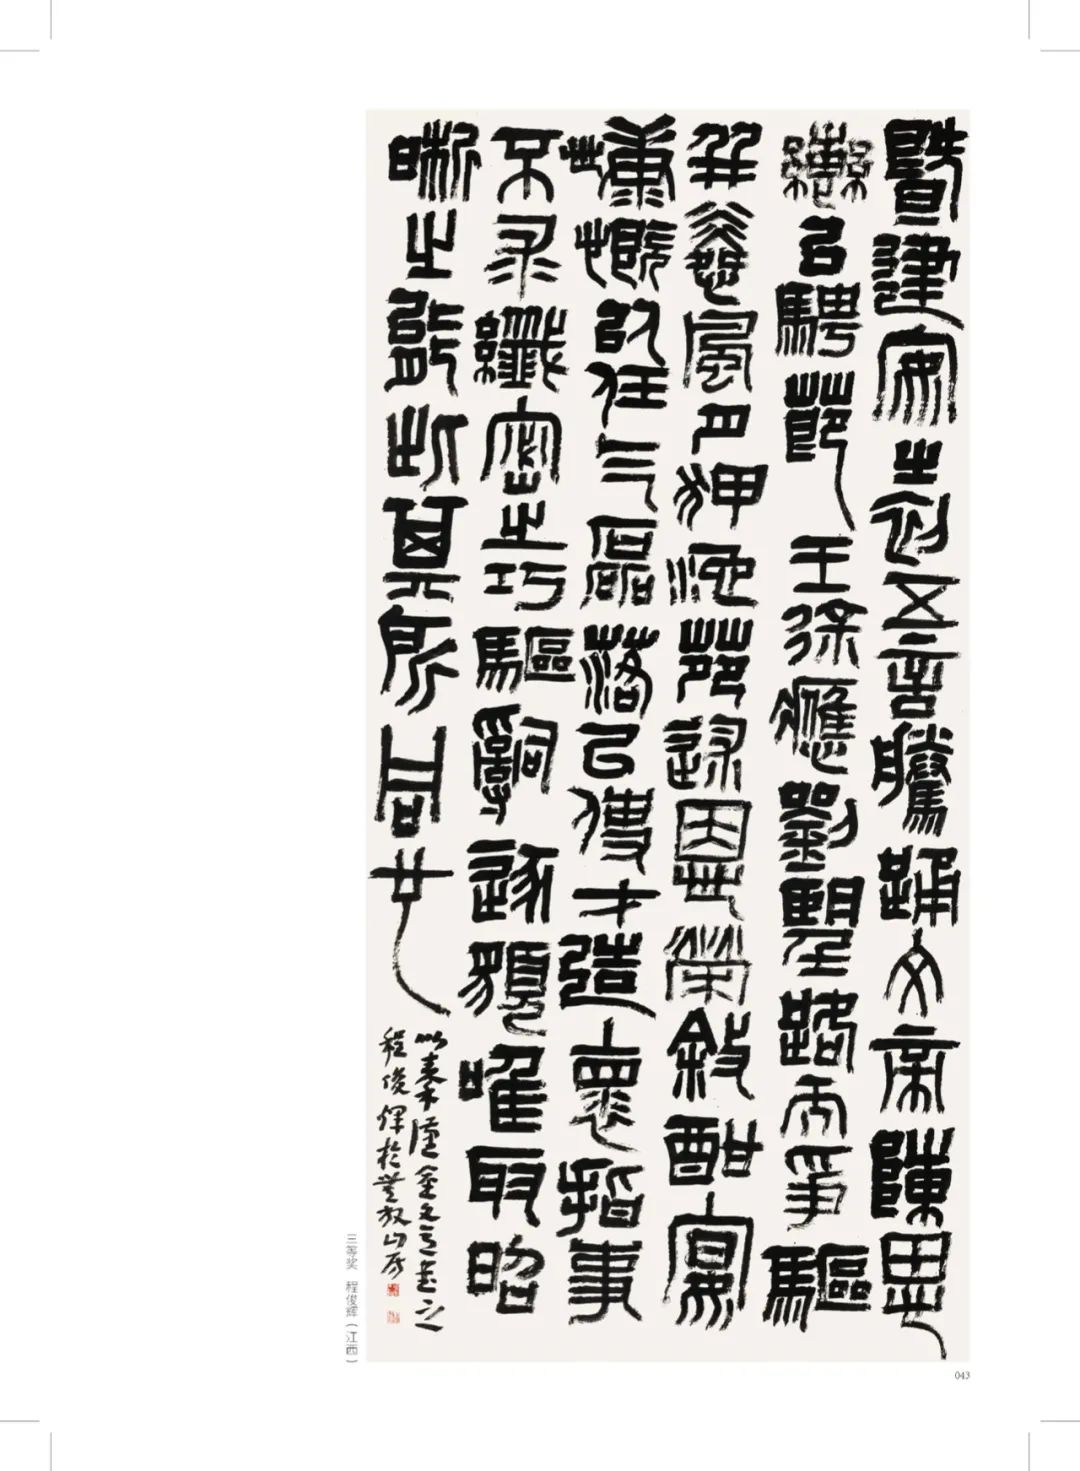 暨建安之初五言騰踊文帝陳思
轡以騁節王徐應劉望路而爭驅
並憐風月狎池苑述恩榮敘酣宴
慷慨以任氣磊落以使才造懷指事
不求纖密之巧驅辭逐貌唯取昭
晰之能此其所同也
以金文意書之
程俊輝於放山房
三等奖 程俊辉（江西）
043